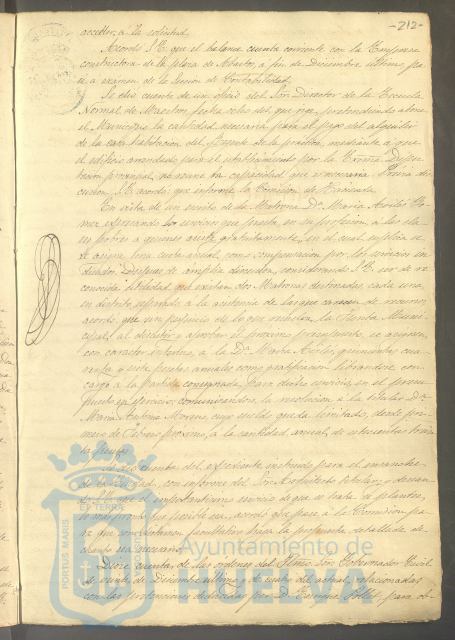 -212-
acceder, á la solicitud.
Acordó S.E. que el balance cuenta corriente con la Empresa
constructora de la plaza de Abastos, á fin de Diciembre último, pa
se á examen de la Sección de Contabilidad.
Se dió cuenta de un oficio del Sor Director de la Escuela
Normal de Maestros, fecha del que rige, pretendiendo abone
el Municipio la cantidad necesaria para el pago del alquiler
de la casa habitación del Regente de la práctica, mediante á que
el edificio arrendado para el establecimiento por la Excma Dipu
tación provincial, no reune la capacidad que es necesaria. Previa dis
cusión, S.E. acordó que informe la Comisión de Hacienda.
En vista de un escrito de la Matrona Dª María Avilés Gó
mez expresando los servicios que presta en su profesión, á las cla
ses pobres á quienes asiste gratuitamente, en el cual suplica se
le asigne una cuota anual, como compensación por los servicios in
dicados. Despues de amplia discusión, considerando S.E. ser de re
conocida utilidad que existan dos Matronas destinadas cada una
en distrito separado á la asistencia de las que carecen de recursos,
acordó, que sin perjuicio de lo que resuelva la Junta Muni
cipal al discutir y aprobar el próximo presupuesto, se asignen
con caracter interino, á la Dª María Avilés, quinientas cua
renta y siete pesetas anuales como gratificación librandose con
cargo á la Partida consignada para dichos servicios, en el presu
puesto en ejercicio, comunicandose, la resolución á la titular Dª
María Antonia Moreno, cuyo sueldo queda limitado, desde pri
mero de Febrero próximo, á la cantidad anual de setecientas treinta
pesetas.
Se dió cuenta del expediente instruido para el ensanche
de la con informe del Sor Arquitecto titular, y deseando
S.E. que el importantisimo servicio de que se trata se plantee,
lo mas pronto que posible sea, acordó que pase á la Comisión pa
ra que con
cuanto sea necesario.
Dióse cuenta, de las ordenes del Iltmo Sor Gobernador Civil
de veinte de Diciembre último y de cuatro del actual, relacionadas
con las pretensiones deducidas por D. Enrique para ob
PORTUS MARIS
ET TERRÆ
Ayuntamiento de
HUELVA